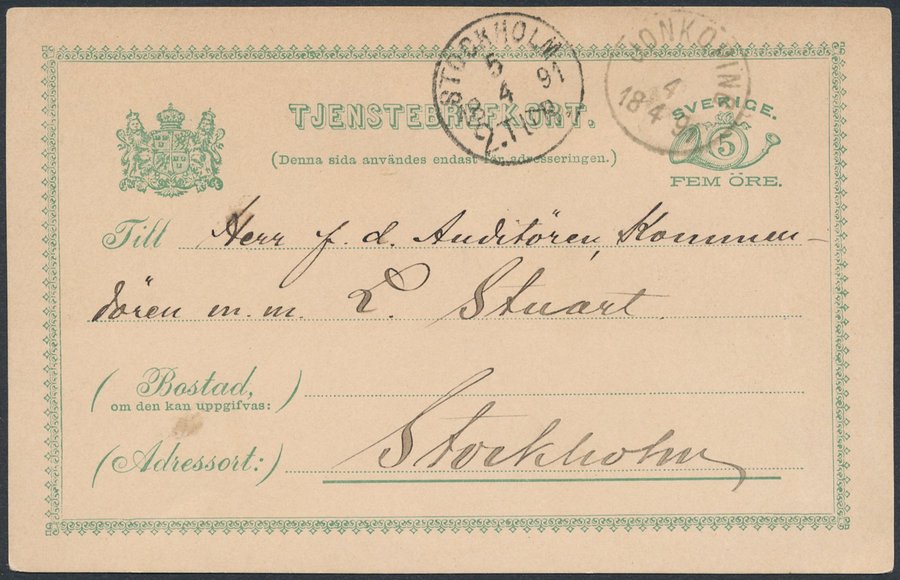 STOCKHOLM
5
18 4 91
2.TUR.
JÖNKÖPING
4
18 4 91
TJENSTEBREFKORT.
(Denna sida användes endast för adresseringen.)
SVERIGE.
5
FEM ÖRE.
Till Herr f. d. Auditören, Kommen-
dören m. m. L. Stuart.
(Bostad,
om den kan uppgifvas:)
(Adressort:) Stockholm